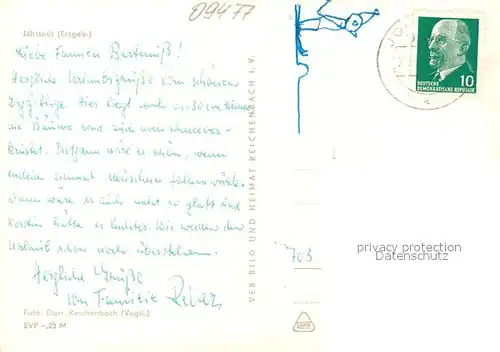 09477
Jöhstadt (Erzgeb.)
Liebe Familien
Herzliche Urlaubsgrüße vom schönen
Erzgebirge. Hier liegt noch ca. 30 cm
die Bäume sind auch
Trotzdem wäre es schön, wenn
endlich einmal Neuschnee fallen würde.
Dann wäre es auch nicht so glatt und
Kerstin hätte es leichter. Wir werden den
Urlaub schon noch überstehen.
Herzliche Grüße
von Familie
Foto: Darr, Reichenbach (Vogtl.)
EVP -,25 M
VEB BILD UND HEIMAT REICHENBACH i. V.
DEUTSCHE
DEMOKRATISCHE REPUBLIK
10
703
privacy protection
Datenschutz